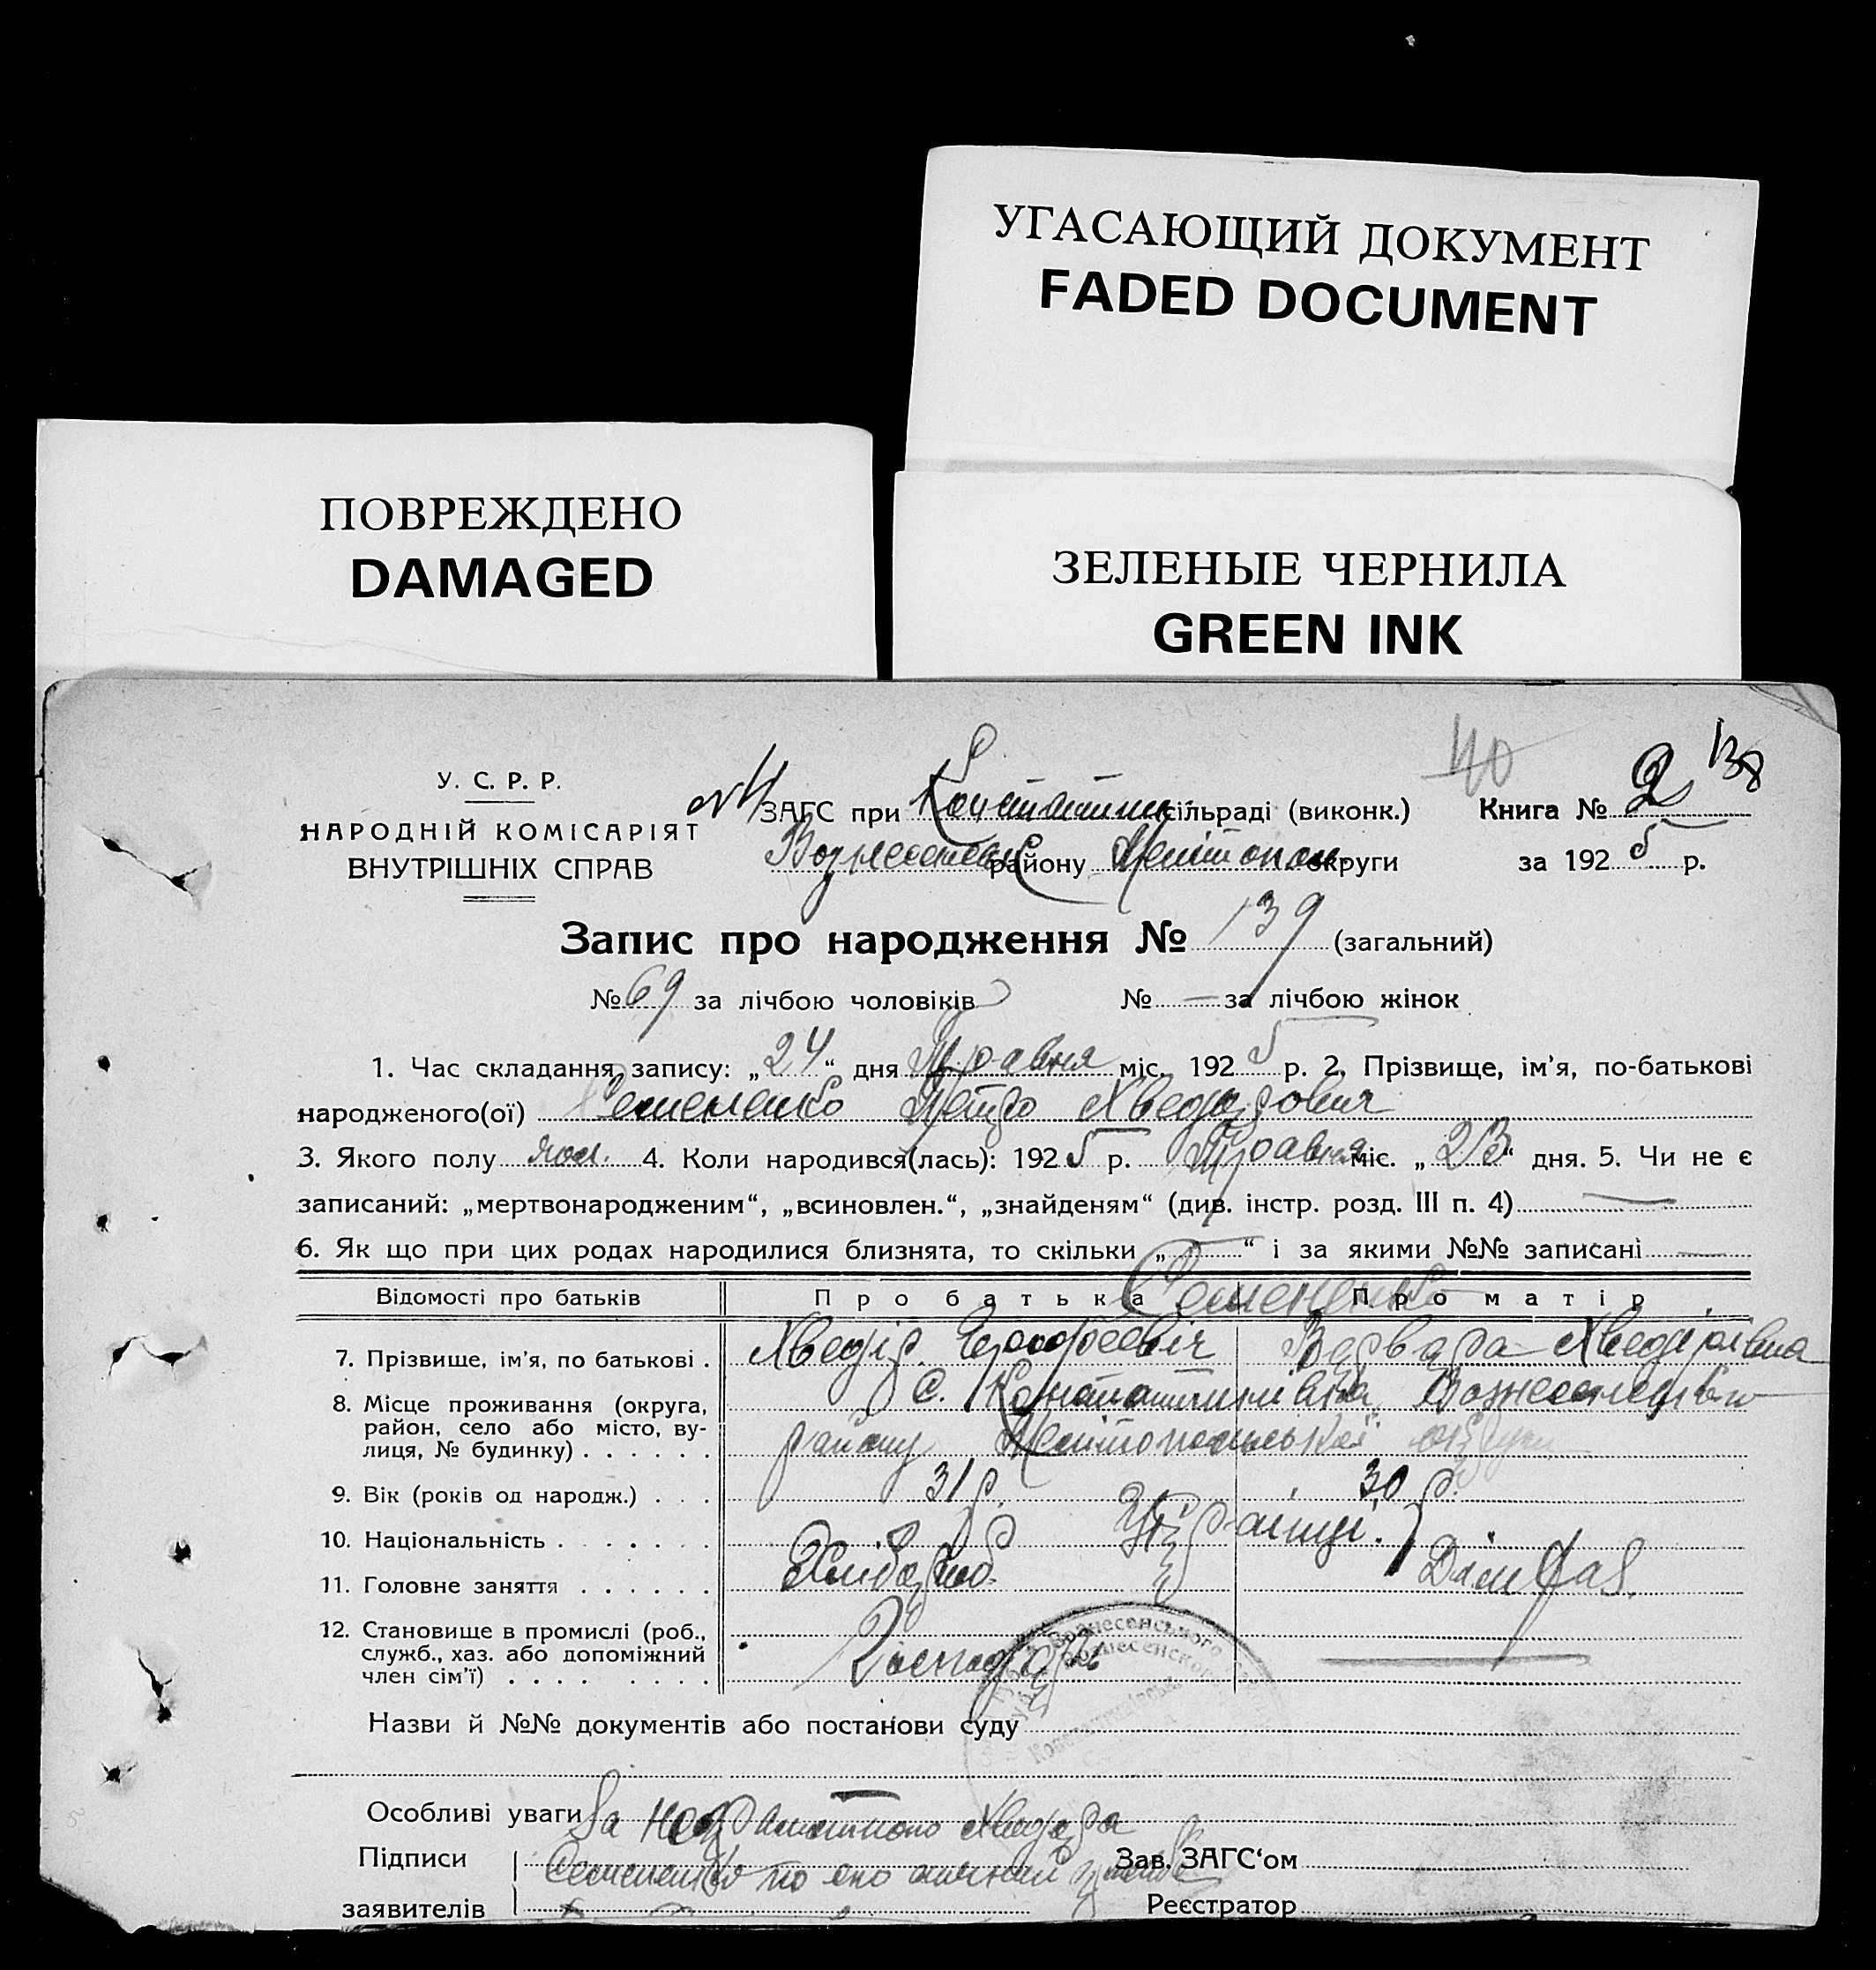 УГАСАЮЩИЙ ДОКУМЕНТ
FADED DOCUMENT
ПОВРЕЖДЕНО
DAMAGED
ЗЕЛЕНЫЕ ЧЕРНИЛА
GREEN INK
40
138
У. С. Р. Р.
НАРОДНІЙ КОМІСАРІЯТ
ВНУТРІШНІХ СПРАВ
ЗАГС при Констатин сільраді (виконк.) Книга № 2
Вознесенськ району Мелітопол. округи за 1925 р.
Запис про народження № 139 (загальний)
№ 69 за лічбою чоловіків № — за лічбою жінок
1. Час складання запису: „24“ дня Травня міс. 1925 р. 2. Прізвище, ім'я, по-батькові
народженого(ої) Семененко Петро Хведорович
3. Якого полу чол. 4. Коли народився(лась): 1925 р. Травня міс. „23“ дня. 5. Чи не є
записаний: „мертвонародженим“, „всиновлен.“, „знайденям“ (див. інстр. розд. III п. 4) —
6. Як що при цих родах народилися близнята, то скільки „—“ і за якими №№ записані —
Відомості про батьків Про батька Про матір
Семененко
7. Прізвище, ім'я, по батькові . Хведір Варвара Хведорівна
8. Місце проживання (округа, с. Констатинівка, Вознесенського
район, село або місто, ву-
лиця, № будинку) . . . . . . району Мелітопольської округи
9. Вік (років од народж.) . . . 31 р. 30 р.
10. Національність . . . . . . . Українці.
11. Головне заняття . . . . . . Хлібороб. Дом. Гос.
12. Становище в промислі (роб.,
служб., хаз. або допоміжний Господарь —
член сім'ї) . . . . . . . . .
Вознесенського
Назви й №№ документів або постанови суду
Особливі уваги За неграмотного Хведора
Підписи Семененко по его личной Зав. ЗАГС'ом
заявителів Реєстратор